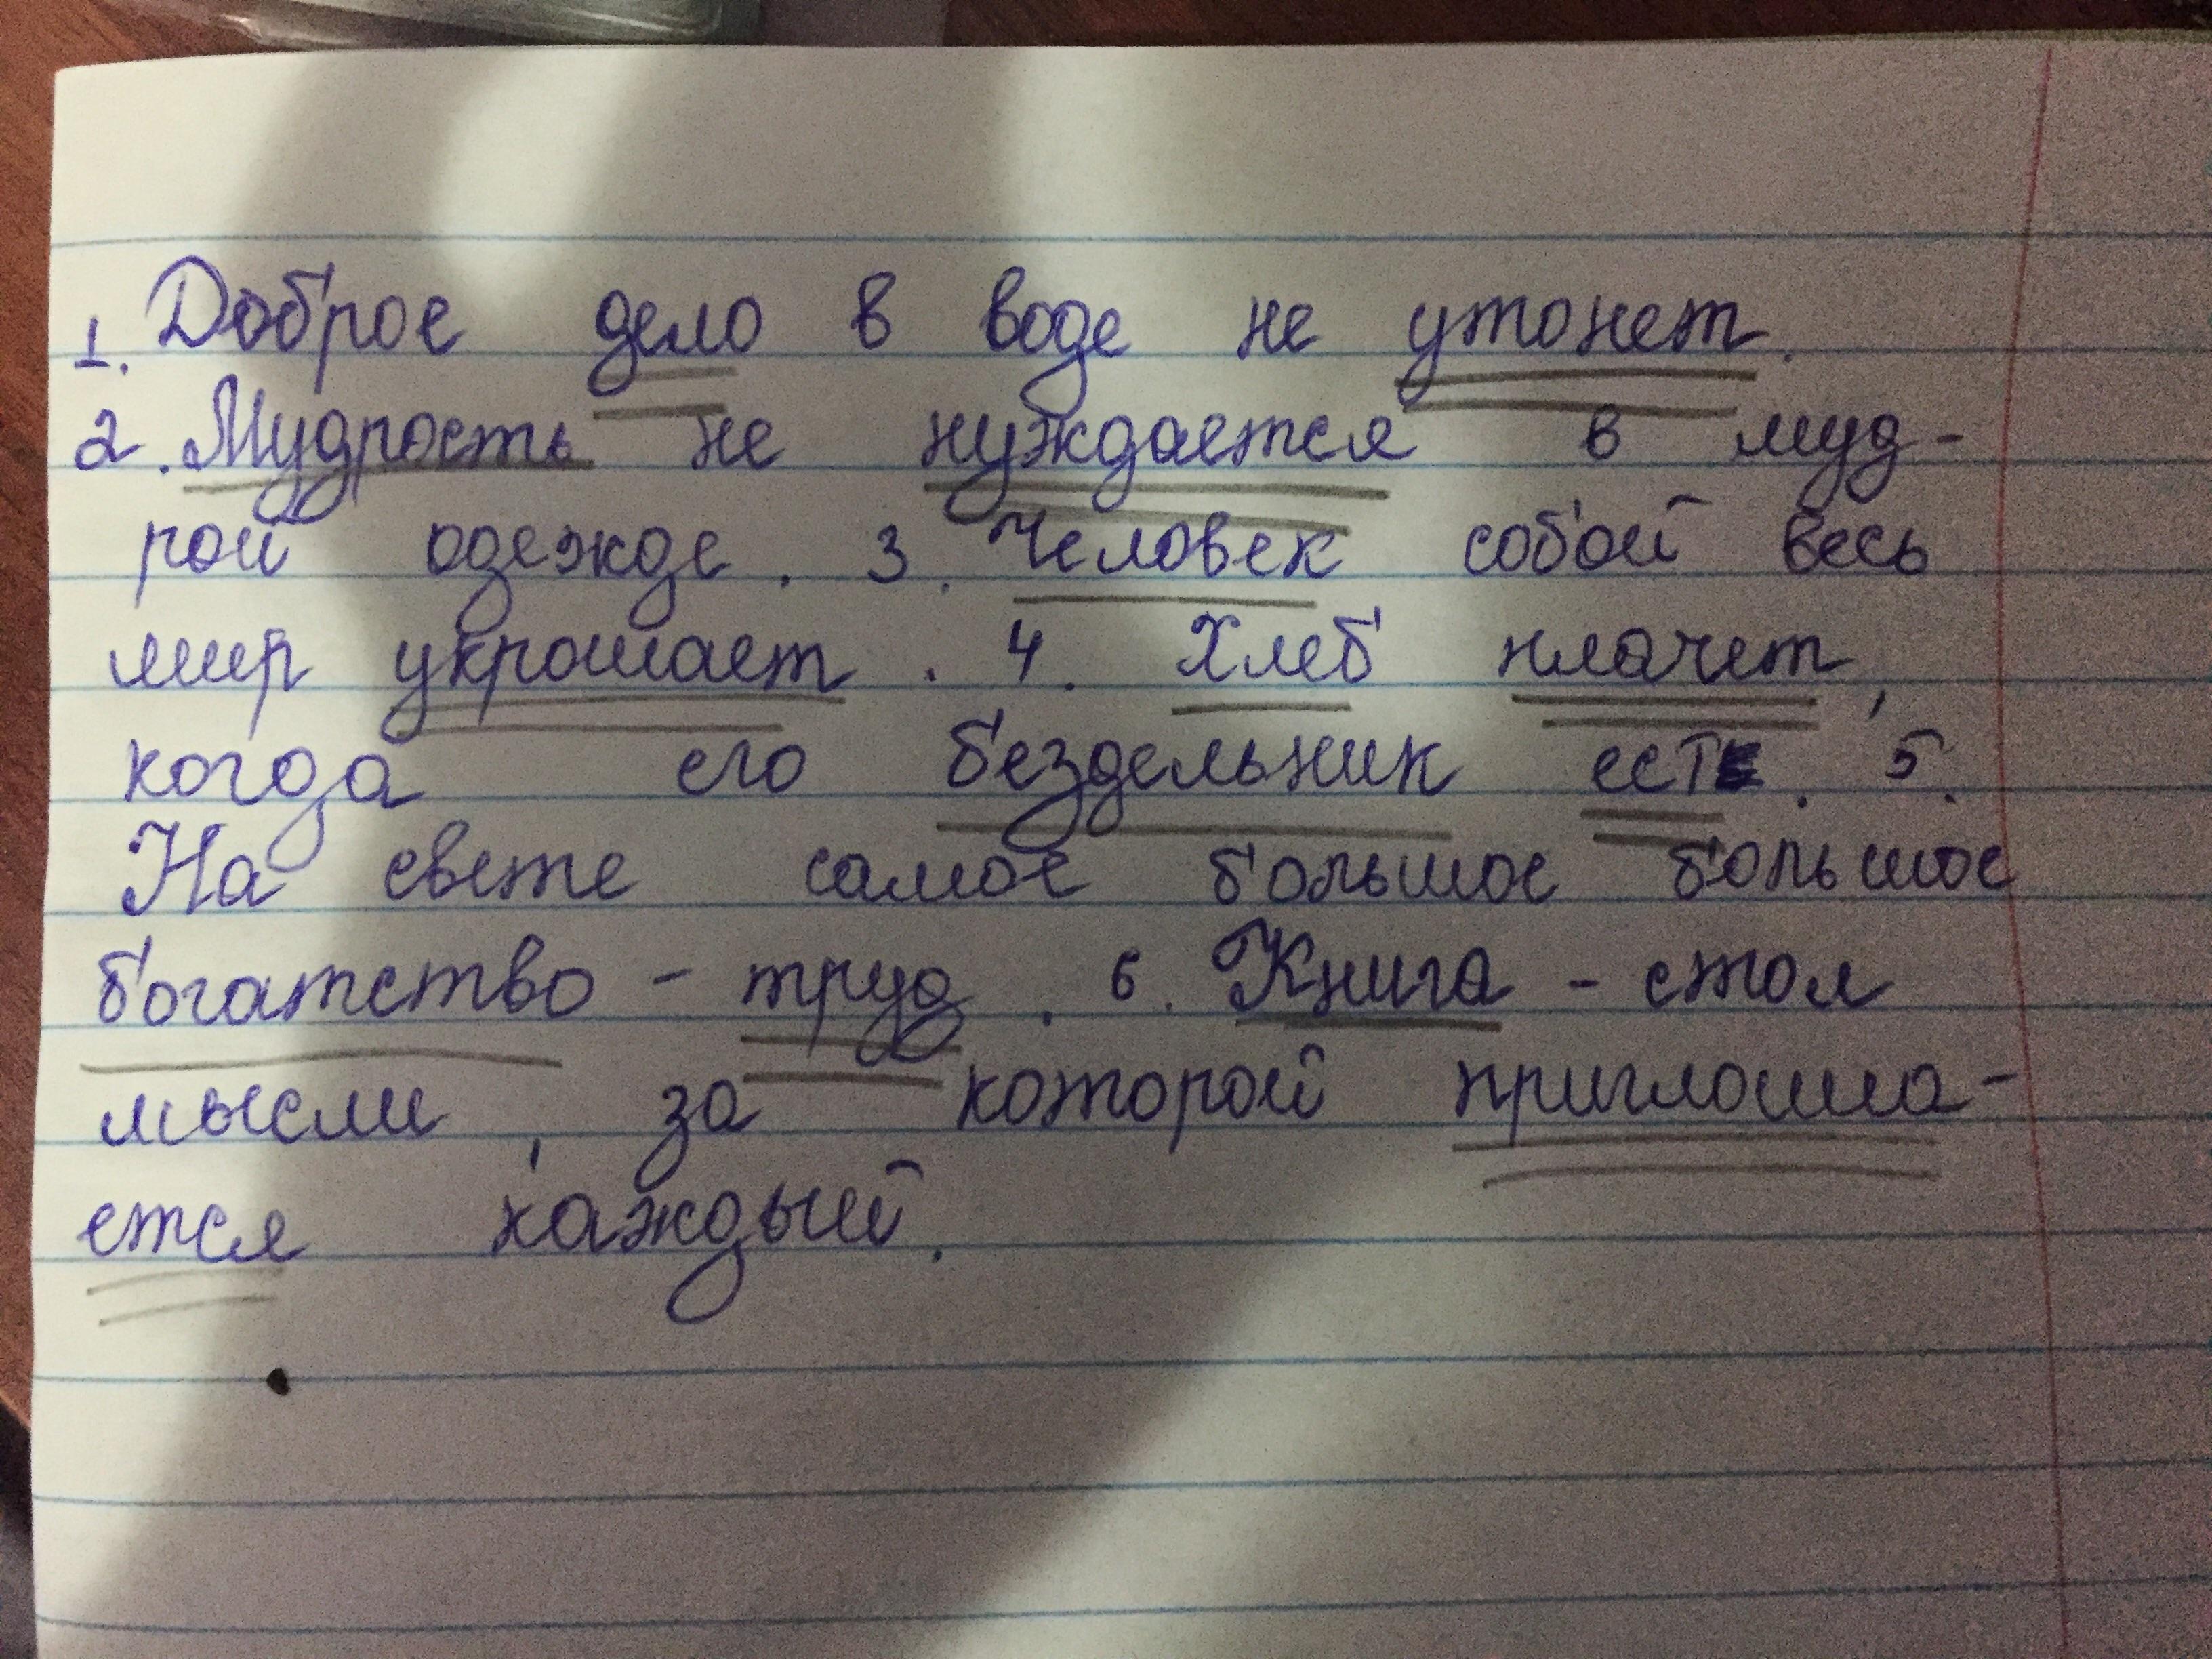 1. Доброе дело в воде не утонет.
2. Мудрость не нуждается в муд-
рой одежде. 3. Человек собой весь
мир украшает. 4. Хлеб плачет,
когда его бездельник есть. 5.
На свете самое большое большое
богатство - труд. 6. Книга - стол
мысли, за которой приглаша-
ется каждый.